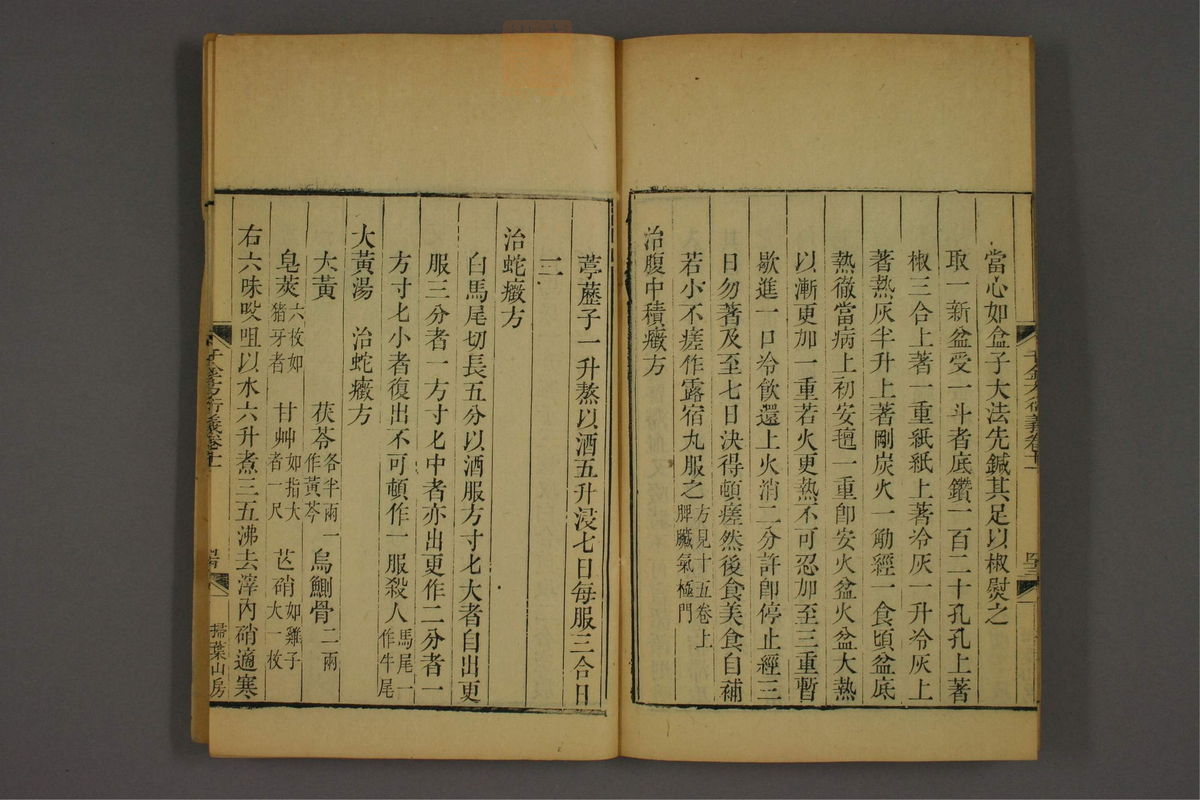 當心如盒子大法先鍼其足以椒熨之
取一新盆受一斗者底鑽一百二十孔孔上著
椒三合上著一重紙紙上著冷灰一升冷灰上
著熱灰半升上著剛炭火一觔經一食頃盆底
熱徹當病上初安氊一重卽安火盆火盆大熱
以漸更加一重若火更熱不可忍加至三重暫
歇進一口冷飲還上火消二分許卽停止經三
日勿著及至七日決得頓瘥然後食美食自補
若小不瘥作露宿丸服之方見十五卷上脾臟氣極門
治腹中積癥方
葶藶子一升熬以酒五升浸七日每服三合日
三
治蛇癥方
白馬尾切長五分以酒服方寸匕大者自出更
服三分者一方寸匕中者亦出更作二分者一
方寸匕小者復出不可頓作一服殺人馬尾一作牛尾
大黃湯 治蛇癥方
大黃 茯苓各半兩一作黃芩 烏鰂骨二兩
皂莢六枚如豬牙者 甘艸如指大者一尺 芒硝如雞子大一枚
右六味㕮咀以水六升煮三五沸去滓內硝適寒
千金方衍義卷十一
掃葉山房